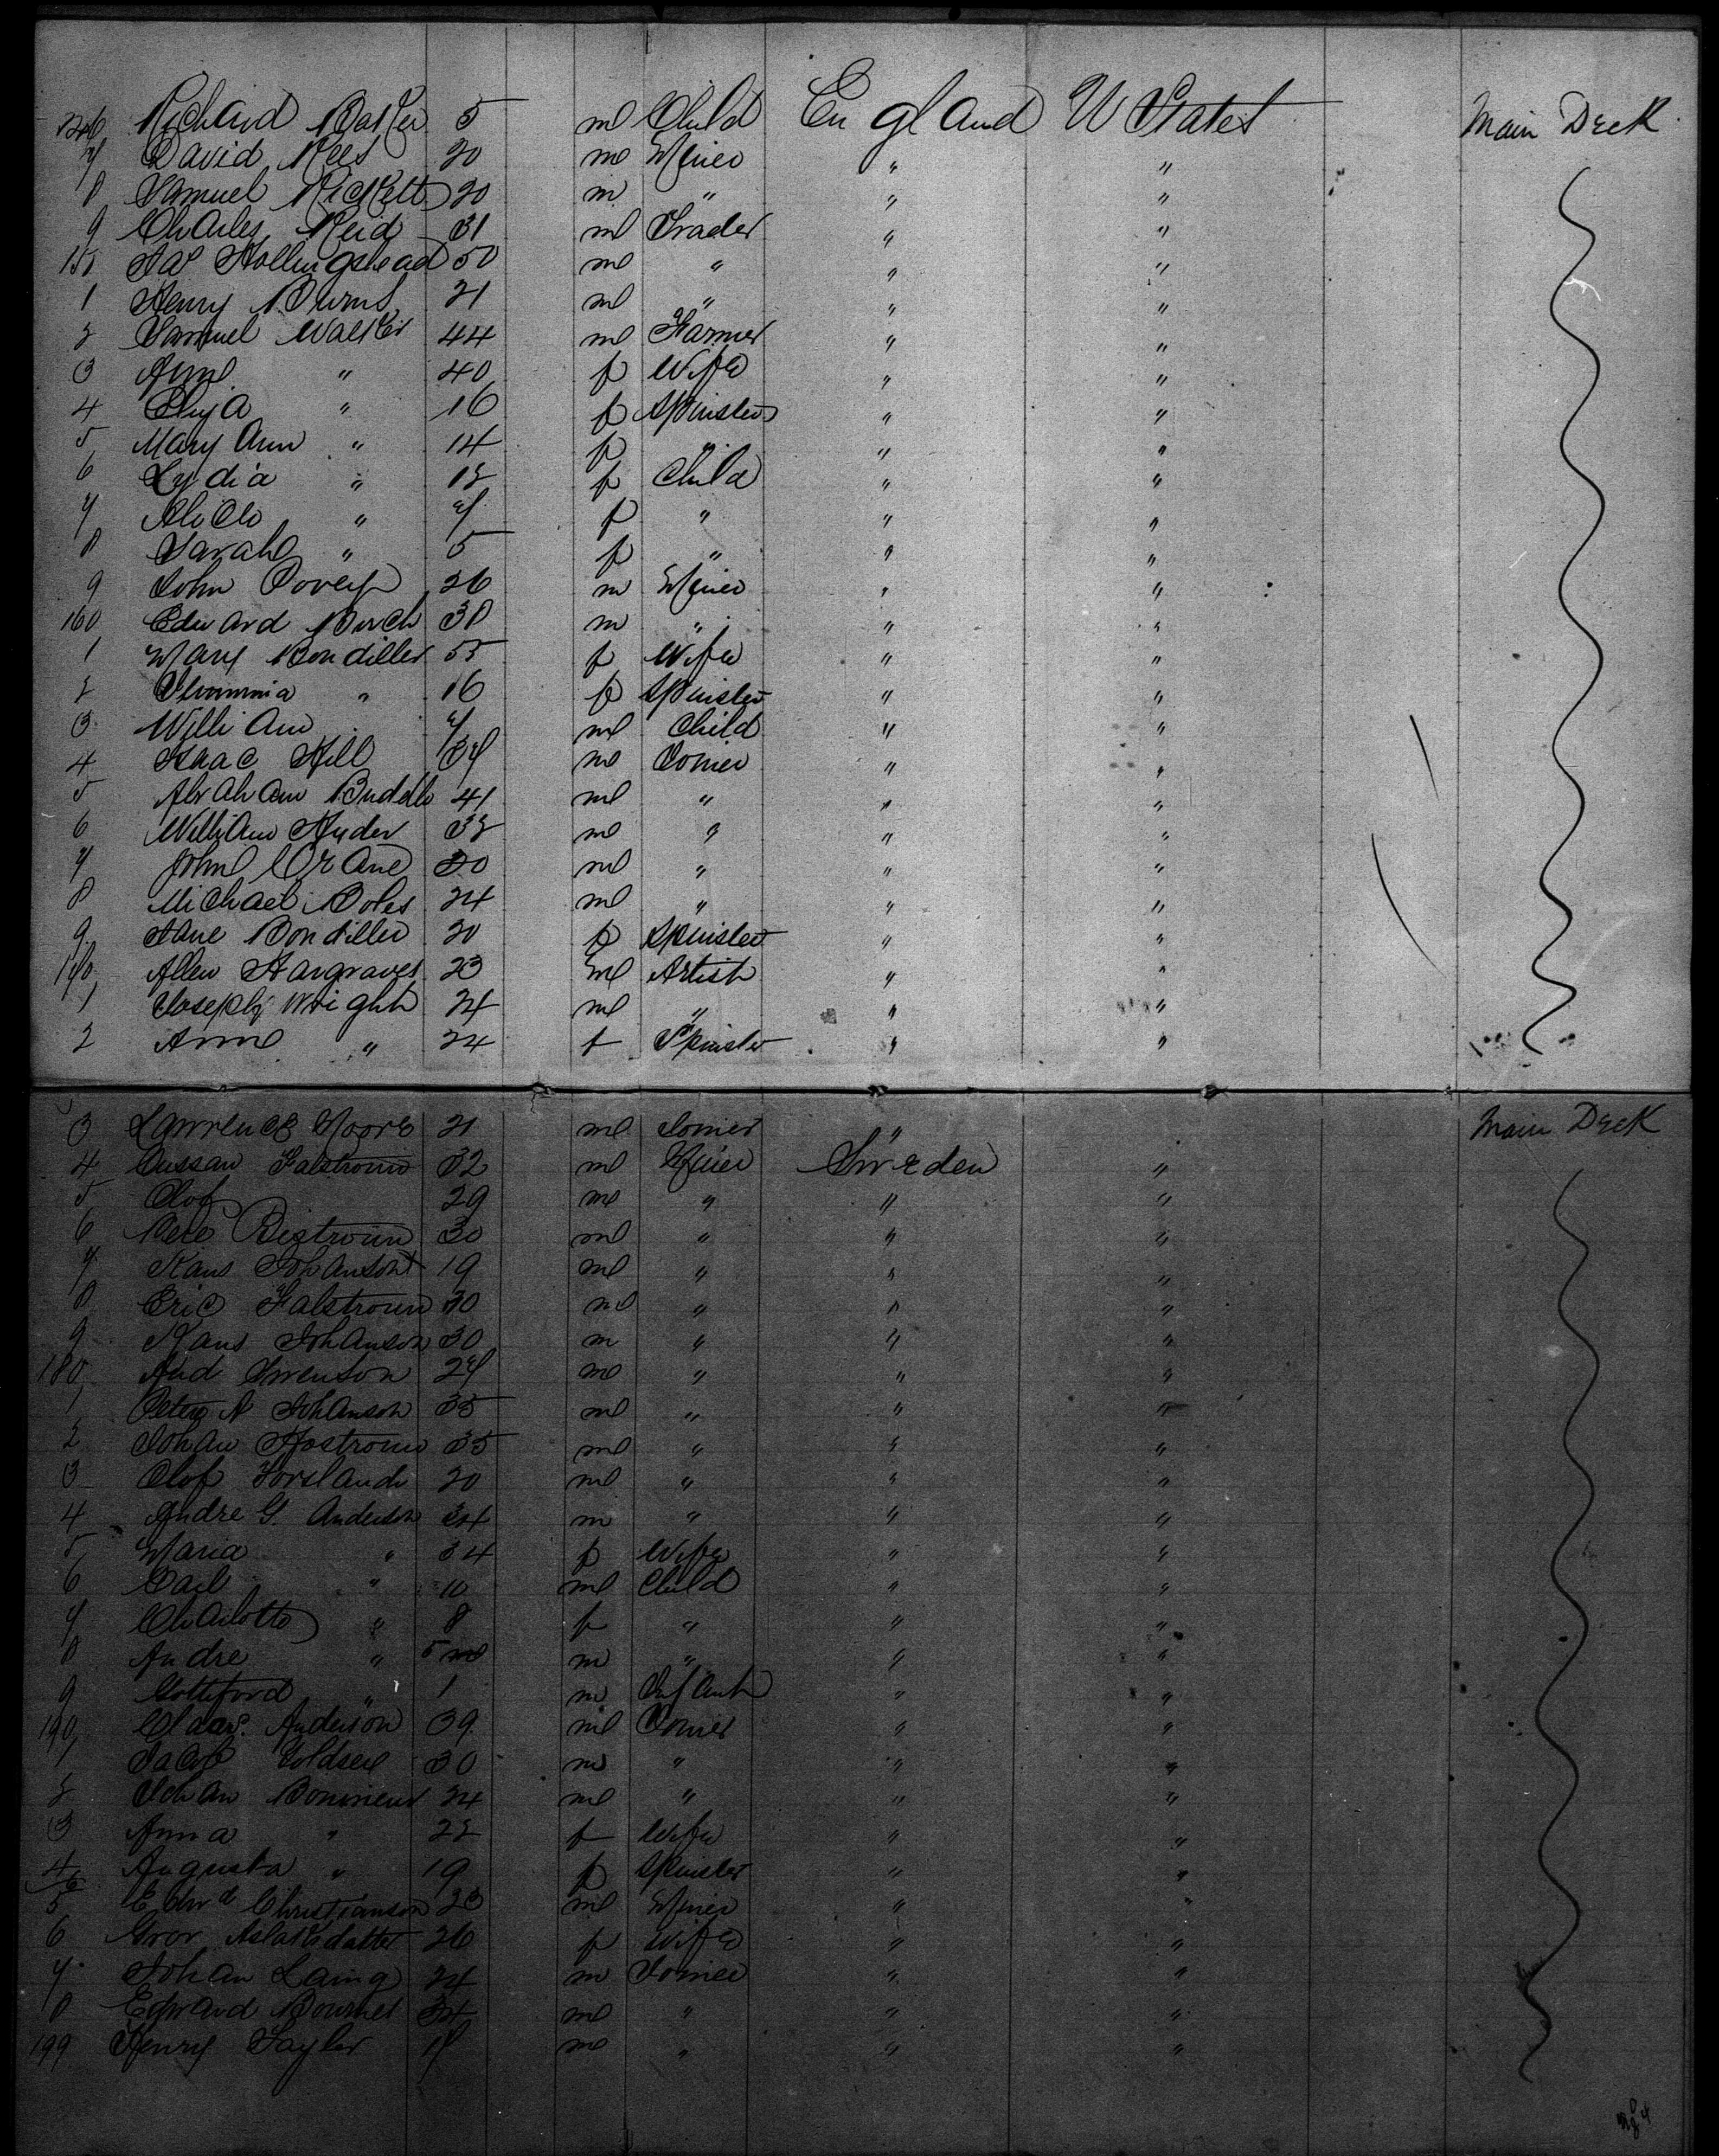 146 Richard Barker 5 m Child England U States Main Deck
7 David Rees 20 m Miner " "
8 Samuel Ricketts 20 m " " "
9 Charles Reid 31 m Trader " "
150 Jas Hollingshead 50 m " " "
1 Henry Burns 21 m " " "
2 Samuel Walker 44 m Farmer " "
3 Ann " 40 f Wife " "
4 Eliza " 16 f Spinster " "
5 Mary Ann " 14 f " " "
6 Lydia " 12 f Child " "
7 Alice " 7 f " " "
8 Sarah " 5 f " " "
9 John Povey 26 m Miner " "
160 Edward Burch 30 m " " "
1 Mary Bondiller 55 f Wife " "
2 " 16 f Spinster " "
3 William 7 m Child " "
4 Isaac Hill 37 m Joiner " "
5 Abraham 41 m " " "
6 William 32 m " " "
7 John Crane 30 m " " "
8 Michael Boles 24 m " " "
9 Jane Bondiller 20 f Spinster " "
170 Allen Hargraves 23 m Artist " "
1 Joseph Wright 24 m " " "
2 Anne " 24 f Spinster " "
3 Lawrence Moore 21 m Joiner " " Main Deck
4 Falstroum 32 m Miner Sweden "
5 Olof 29 m " " "
6 30 m " " "
7 Hans Johanson 19 m " " "
8 Eric Falstroum 30 m " " "
9 Hans Johanson 30 m " " "
180 And Swenson 27 m " " "
1 Peter A Johanson 35 m " " "
2 Johan 35 m " " "
3 Olof Forsland 20 m " " "
4 Andre G. Anderson 34 m " " "
5 Maria " 34 f Wife " "
6 Carl " 10 m Child " "
7 Charlotte " 8 f " " "
8 Andre " 5 m " " "
9 " 1 m Infant " "
190 Claas Anderson 39 m Joiner " "
1 Jacob 30 m " " "
2 Johan 24 m " " "
3 Anna " 22 f Wife " "
4 Augusta " 19 f Spinster " "
5 Edwd Christianson 23 m Miner " "
6 26 f Wife " "
7 Johan Laing 24 m Joiner " "
8 Edward 34 m " " "
199 Henry Tayler m " " "